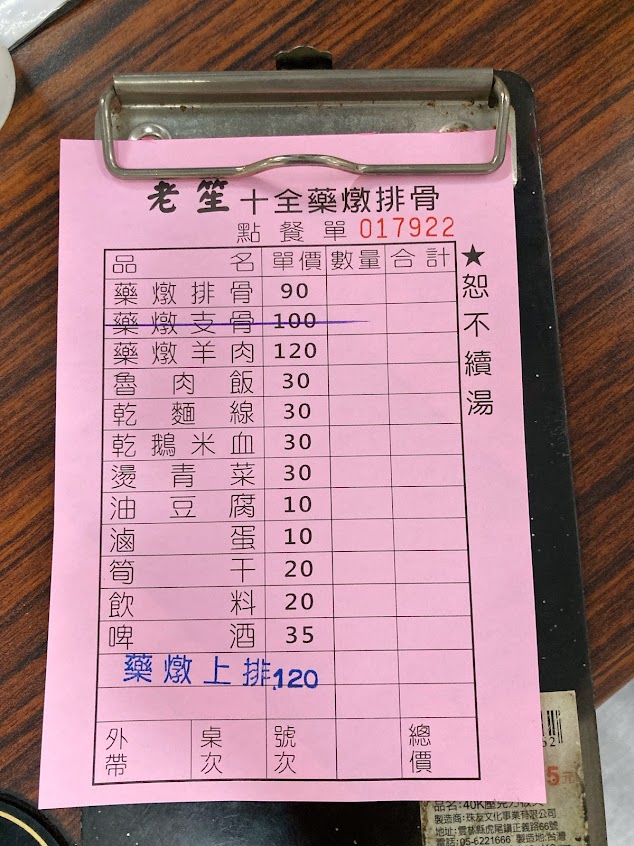 老笙十全藥燉排骨
點餐單 017922
品名 單價 數量 合計
藥燉排骨 90
藥燉支骨 100
藥燉羊肉 120
魯肉飯 30
乾麵線 30
乾鵝米血 30
燙青菜 30
油豆腐 10
滷蛋 10
筍干 20
飲料 20
啤酒 35
藥燉上排 120
外帶 桌次 號次 總價
★恕不續湯
5元
製造商:珠友文化事業有限公司
地址:雲林縣虎尾鎮正義路66號
電話:05-6221666 製造地:台灣